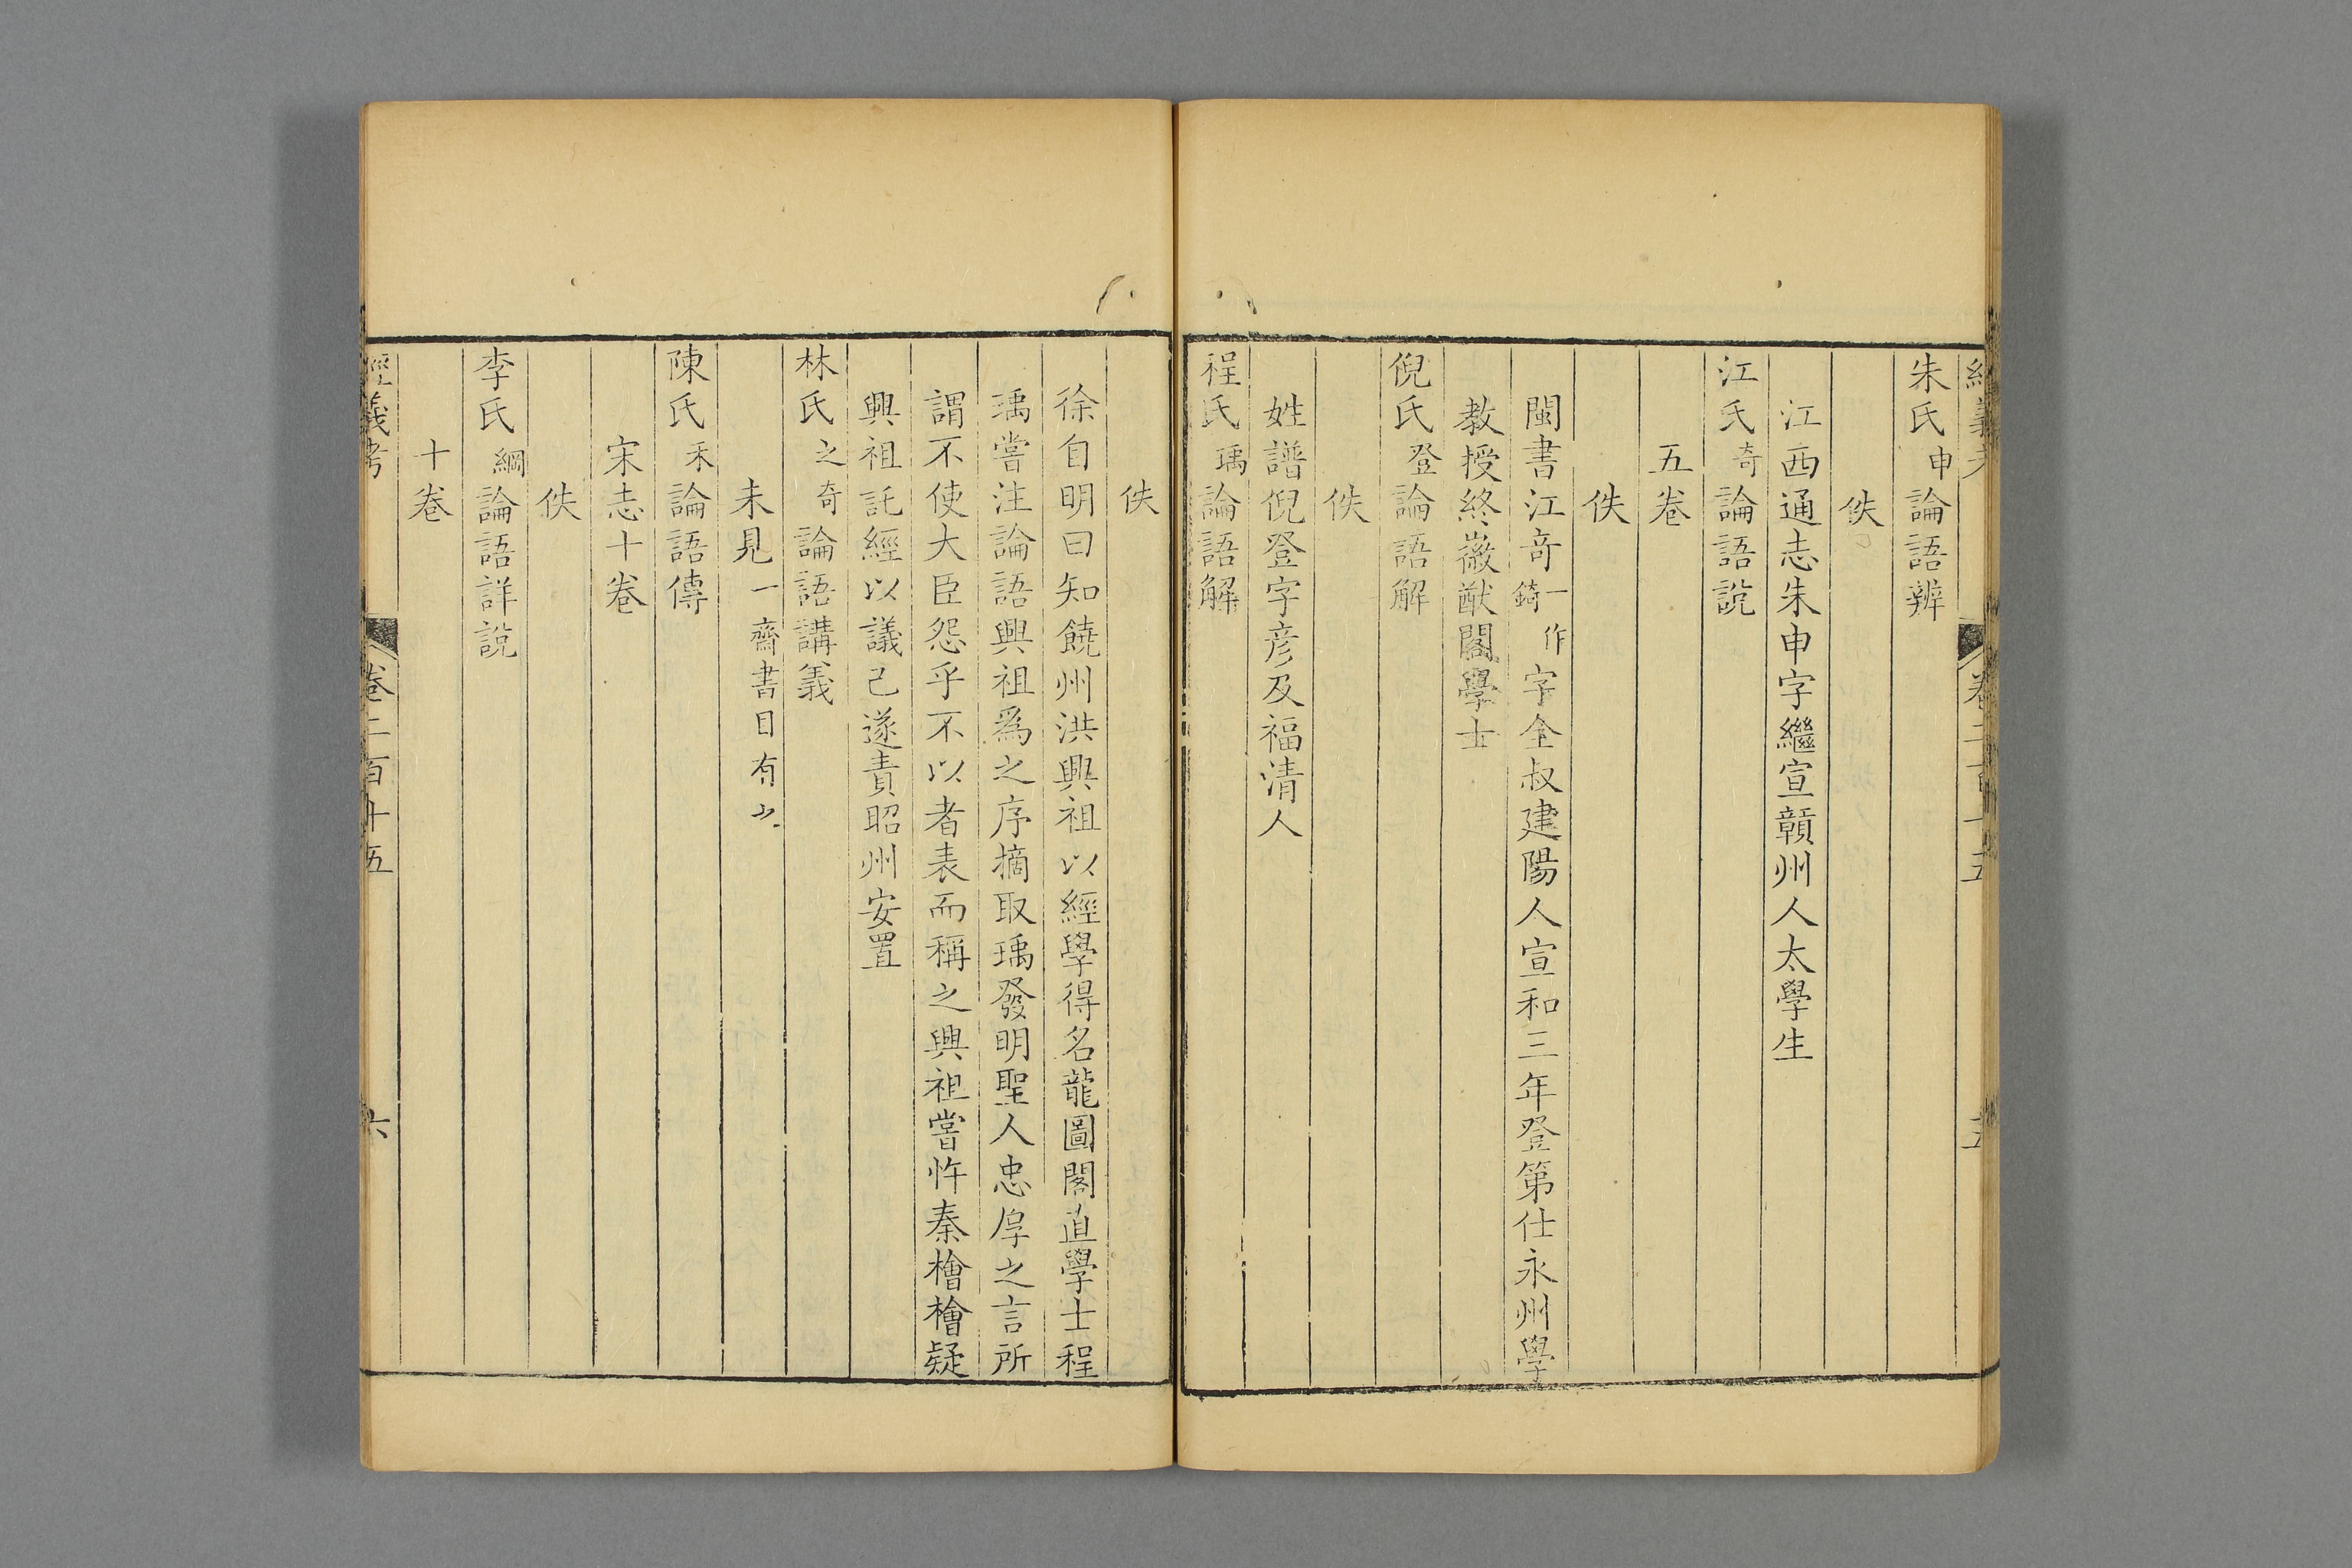 經義考 卷二百十五 五
朱氏申論語辨
佚
江西通志朱申字繼宣贛州人太學生
江氏奇論語說
五卷
佚
閩書江奇一作錡字全叔建陽人宣和三年登第仕永州學
教授終徽猷閣學士
倪氏登論語解
佚
姓譜倪登字彥及福清人
程氏瑀論語解
佚
徐自明曰知饒州洪興祖以經學得名龍圖閣直學士程
瑀嘗注論語興祖爲之序摘取瑀發明聖人忠厚之言所
謂不使大臣怨乎不以者表而稱之興祖嘗忤秦檜檜疑
興祖託經以議己遂責昭州安置
林氏之奇論語講義
未見一齋書目有之
陳氏禾論語傳
宋志十卷
佚
李氏綱論語詳說
十卷
經義考 卷二百十五 六